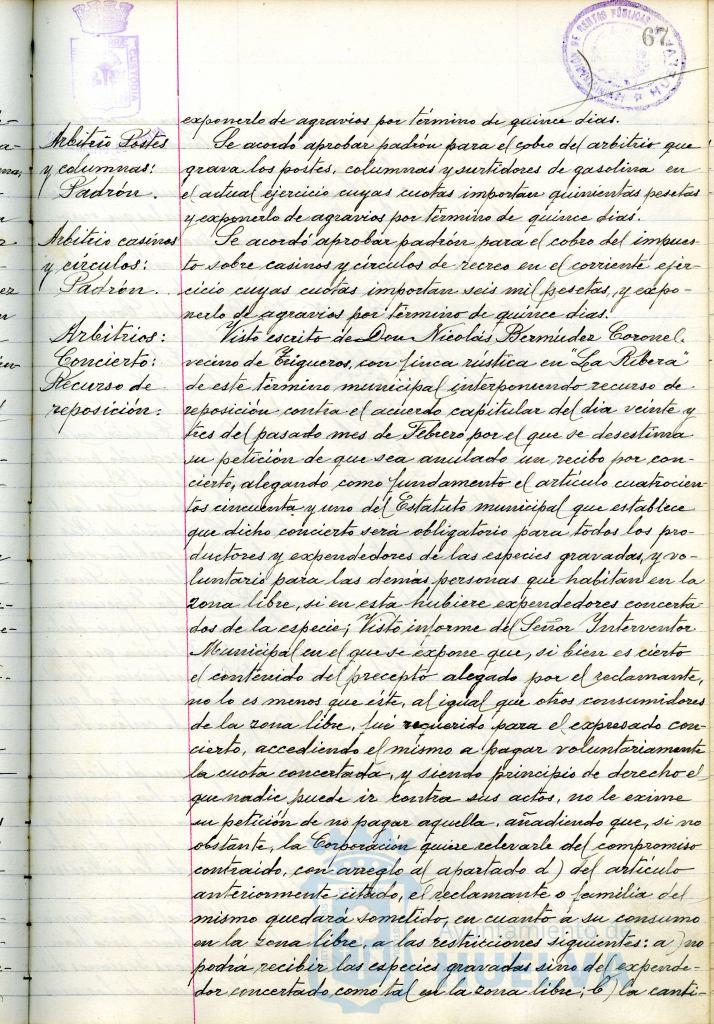 67
exponerlo de agravios por término de quince dias.
Arbitrio Postes
y columnas:
Padrón.
Se acordo aprobar padrón para el cobro del arbitrio que
grava los postes, columnas y surtidores de gasolina en
el actual ejercicio cuyas cuotas importan quinientas pesetas
y exponerlo de agravios por término de quince dias.
Arbitrio casinos
y círculos:
Padrón.
Se acordó aprobar padrón para el cobro del impues-
to sobre casinos y círculos de recreo en el corriente ejer-
cicio cuyas cuotas importan seis mil pesetas, y expo-
nerlo de agravios por término de quince dias.
Arbitrios:
Concierto:
Recurso de
reposición:
Visto escrito de Don Nicolás Bermúdez Coronel,
vecino de Trigueros, con finca rústica en "La Ribera"
de este término municipal interponiendo recurso de
reposición contra el acuerdo capitular del dia veinte y
tres del pasado mes de Febrero por el que se desestima
su petición de que sea anulado un recibo por con-
cierto, alegando como fundamento el artículo cuatrocien-
tos cincuenta y uno del Estatuto municipal que establece
que dicho concierto será obligatorio para todos los pro-
ductores y expendedores de las especies gravadas, y vo-
luntario para las demás personas que habitan en la
zona libre, si en esta hubiere expendedores concerta-
dos de la especie; Visto informe del Señor Interventor
Municipal en el que se expone que, si bien es cierto
el contenido del precepto alegado por el reclamante,
no lo es menos que éste, al igual que otros consumidores
de la zona libre, fué requerido para el expresado con-
cierto, accediendo el mismo a pagar voluntariamente
la cuota concertada, y siendo principio de derecho el
que nadie puede ir contra sus actos, no le exime
su petición de no pagar aquella, añadiendo que, si no
obstante, la Corporación quiere relevarle del compromiso
contraido, con arreglo al apartado d) del artículo
anteriormente citado, el reclamante o familia del
mismo quedará sometido, en cuanto a su consumo
en la zona libre, a las restricciones siguientes: a) no
podrá recibir las especies gravadas sino del expende-
dor concertado como tal en la zona libre; b) la canti-
Ayuntamiento de
HUELVA